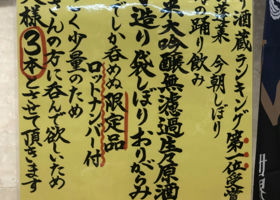 り酒蔵ランキング第一位
今朝しぼり
の踊り飲み
米大吟醸無濾過生原酒
造り袋しぼりおりがらみ
でしか呑めぬ限定品
ロットナンバー付
く少量のため
さんの方に呑んで欲しいため
様3本とさせて頂きます